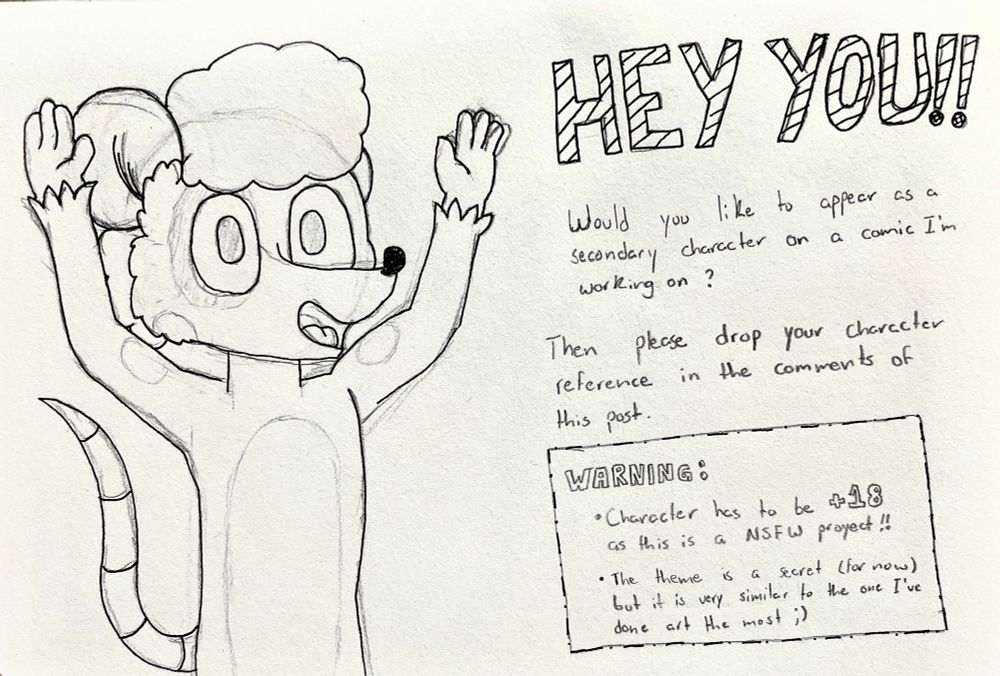 HEY YOU!!
Would you like to appear as a
secondary character on a comic I'm
working on ?
Then please drop your character
reference in the comments of
this post.
WARNING:
• Character has to be +18
as this is a NSFW proyect!!
• The theme is a secret (for now)
but it is very similar to the one I've
done art the most ;)